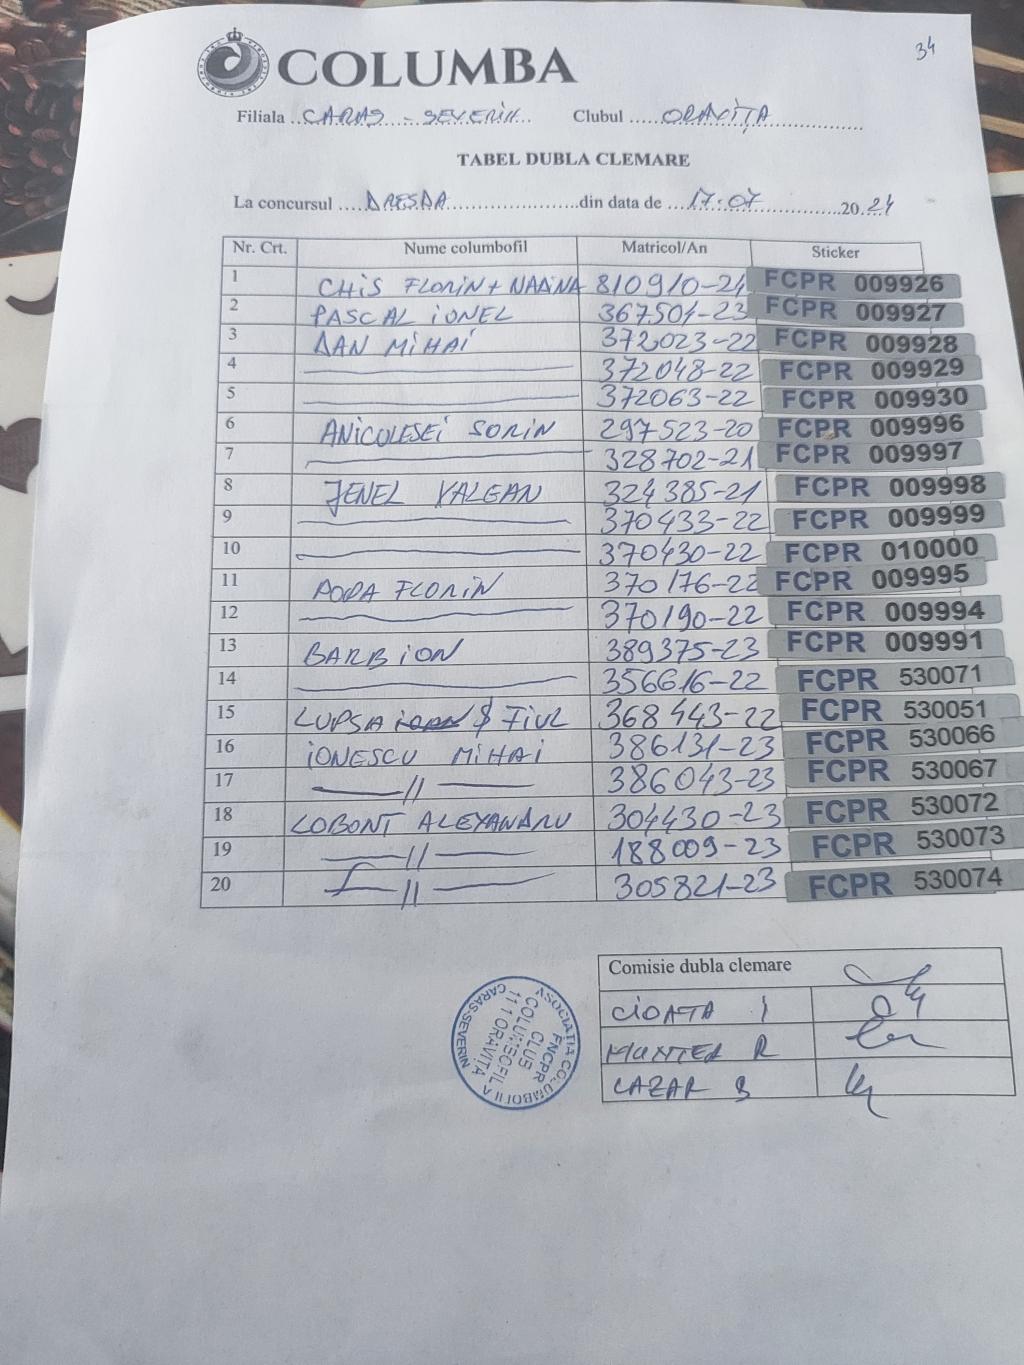 34
COLUMBA
Filiala ..CARAS - SEVERIN... Clubul .....ORAVIȚA...............
TABEL DUBLA CLEMARE
La concursul ....DRESDA........................din data de ...17.07................20.24
Nr. Crt. Nume columbofil Matricol/An Sticker
1 CHIS FLORIN + NADINA 810910-24 FCPR 009926
2 PASCAL IONEL 367504-23 FCPR 009927
3 DAN MIHAI 372023-22 FCPR 009928
4 372048-22 FCPR 009929
5 372063-22 FCPR 009930
6 ANICULESEI SORIN 297523-20 FCPR 009996
7 328702-21 FCPR 009997
8 JENEL VALEAN 324385-21 FCPR 009998
9 370433-22 FCPR 009999
10 370430-22 FCPR 010000
11 POPA FLORIN 370176-22 FCPR 009995
12 370190-22 FCPR 009994
13 BARB ION 389375-23 FCPR 009991
14 356616-22 FCPR 530071
15 LUPSA & FIUL 368443-22 FCPR 530051
16 IONESCU MIHAI 386131-23 FCPR 530066
17 —//— 386043-23 FCPR 530067
18 LOBONT ALEXANDRU 304430-23 FCPR 530072
19 —//— 188009-23 FCPR 530073
20 —//— 305821-23 FCPR 530074
Comisie dubla clemare
CIOATA I
MUNTEA R
LAZAR S
ASOCIATIA COLUMBOFILA
CARAS-SEVERIN
FNCPR
CLUB
COLUMBOFIL
111 ORAVIȚA